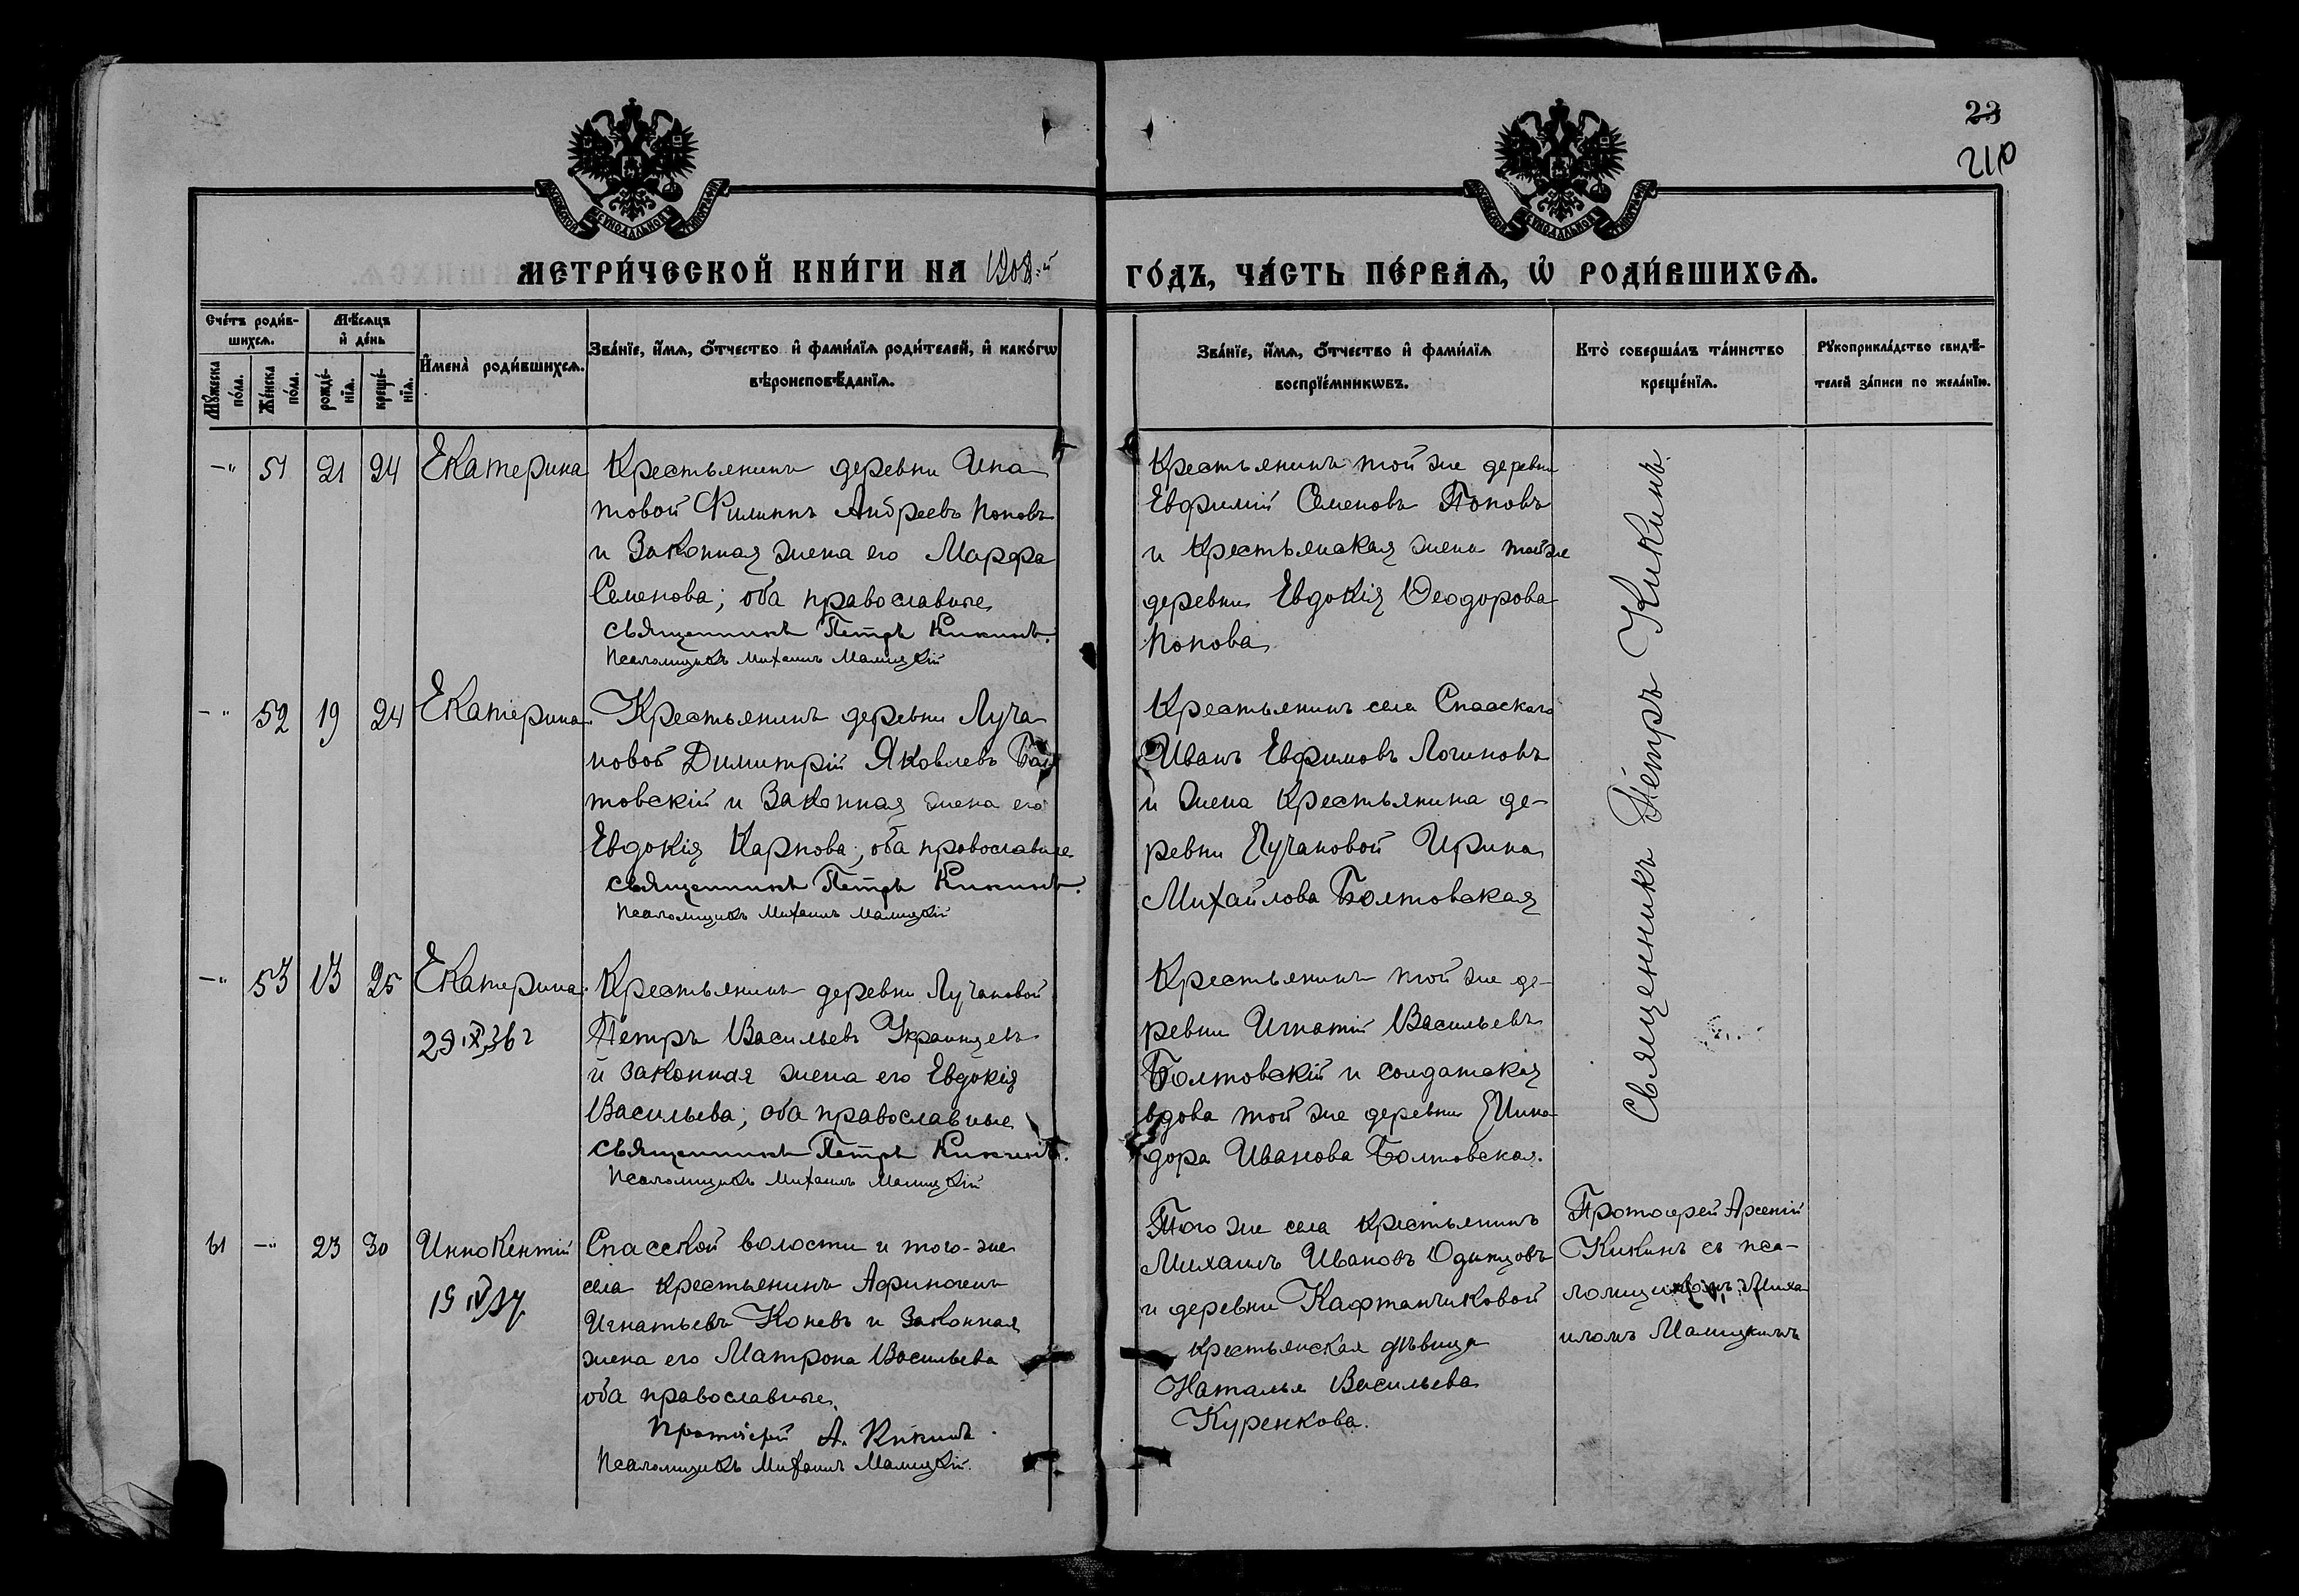 23
210
МЕТРИ́ЧЕСКОЙ КНИ́ГИ НА 1908-й
ГО́ДЪ, ЧА́СТЬ ПЕ́РВАѦ, Ѡ҆ РОДИ́ВШИХСѦ.
Сче́тъ роди́в-
шихсѧ.
Мѣ́сѧцъ
и҆ де́нь
Мꙋ́жеска
по́ла.
Же́нска
по́ла.
рожде́-
нїѧ.
креще́-
нїѧ.
И҆мена̀ роди́вшихсѧ.
Зва́нїе, и҆́мѧ, ѻ҆́тчество и҆ фами́лїѧ роди́телей, и҆ како́гѡ
вѣроисповѣ́данїѧ.
Зва́нїе, и҆́мѧ, ѻ҆́тчество и҆ фами́лїѧ
воспрїе́мникѡвъ.
Кто̀ соверша́лъ та́инство
креще́нїѧ.
Рꙋкоприкла́дство свидѣ́-
телей за́писи по жела́нїю.
-" 51 21 24 Екатерина
Крестьянинъ деревни Ипа-
товой Филиппъ Андреевъ Поповъ
и законная жена его Марфа
Семенова; оба православные
Священникъ Петръ Кикинъ.
Псаломщикъ Михаилъ Малицкій
Крестьянинъ той же деревни
Евфимій Семеновъ Поповъ
и крестьянская жена той же
деревни Евдокія Ѳеодорова
Попова
-" 52 19 24 Екатерина
Крестьянинъ деревни Луча-
новой Димитрій Яковлевъ
товскій и законная жена его
Евдокія Карпова; оба православные
Священникъ Петръ Кикинъ.
Псаломщикъ Михаилъ Малицкій
Крестьянинъ села Спасскаго
Иванъ Евфимовъ Логиновъ
и жена крестьянина де-
ревни Лучановой Ирина
Михайлова Болтовская
-" 53 13 25 Екатерина
29 IX 36 г
Крестьянинъ деревни Лучановой
Петръ Васильевъ Украинцевъ
и законная жена его Евдокія
Васильева; оба православные
Священникъ Петръ Кикинъ.
Псаломщикъ Михаилъ Малицкій
Крестьянинъ той же де-
ревни Игнатій Васильевъ
Болтовскій и солдатская
вдова той же деревни
дора Иванова Болтовская.
Священникъ Петръ Кикинъ.
61 -" 23 30 Иннокентій
19 IV 37
Спасской волости и того-же
села крестьянинъ Афиногенъ
Игнатьевъ Коневъ и законная
жена его Матрона Васильева
оба православные,
Протоіерей А. Кикинъ.
Псаломщикъ Михаилъ Малицкій.
Того же села крестьянинъ
Михаилъ Ивановъ Одинцовъ
и деревни Кафтанчиковой
крестьянская дѣвица
Наталья Васильева
Куренкова.
Протоіерей Арсеній
Кикинъ съ пса-
ломщикомъ Миха-
иломъ Малицкимъ